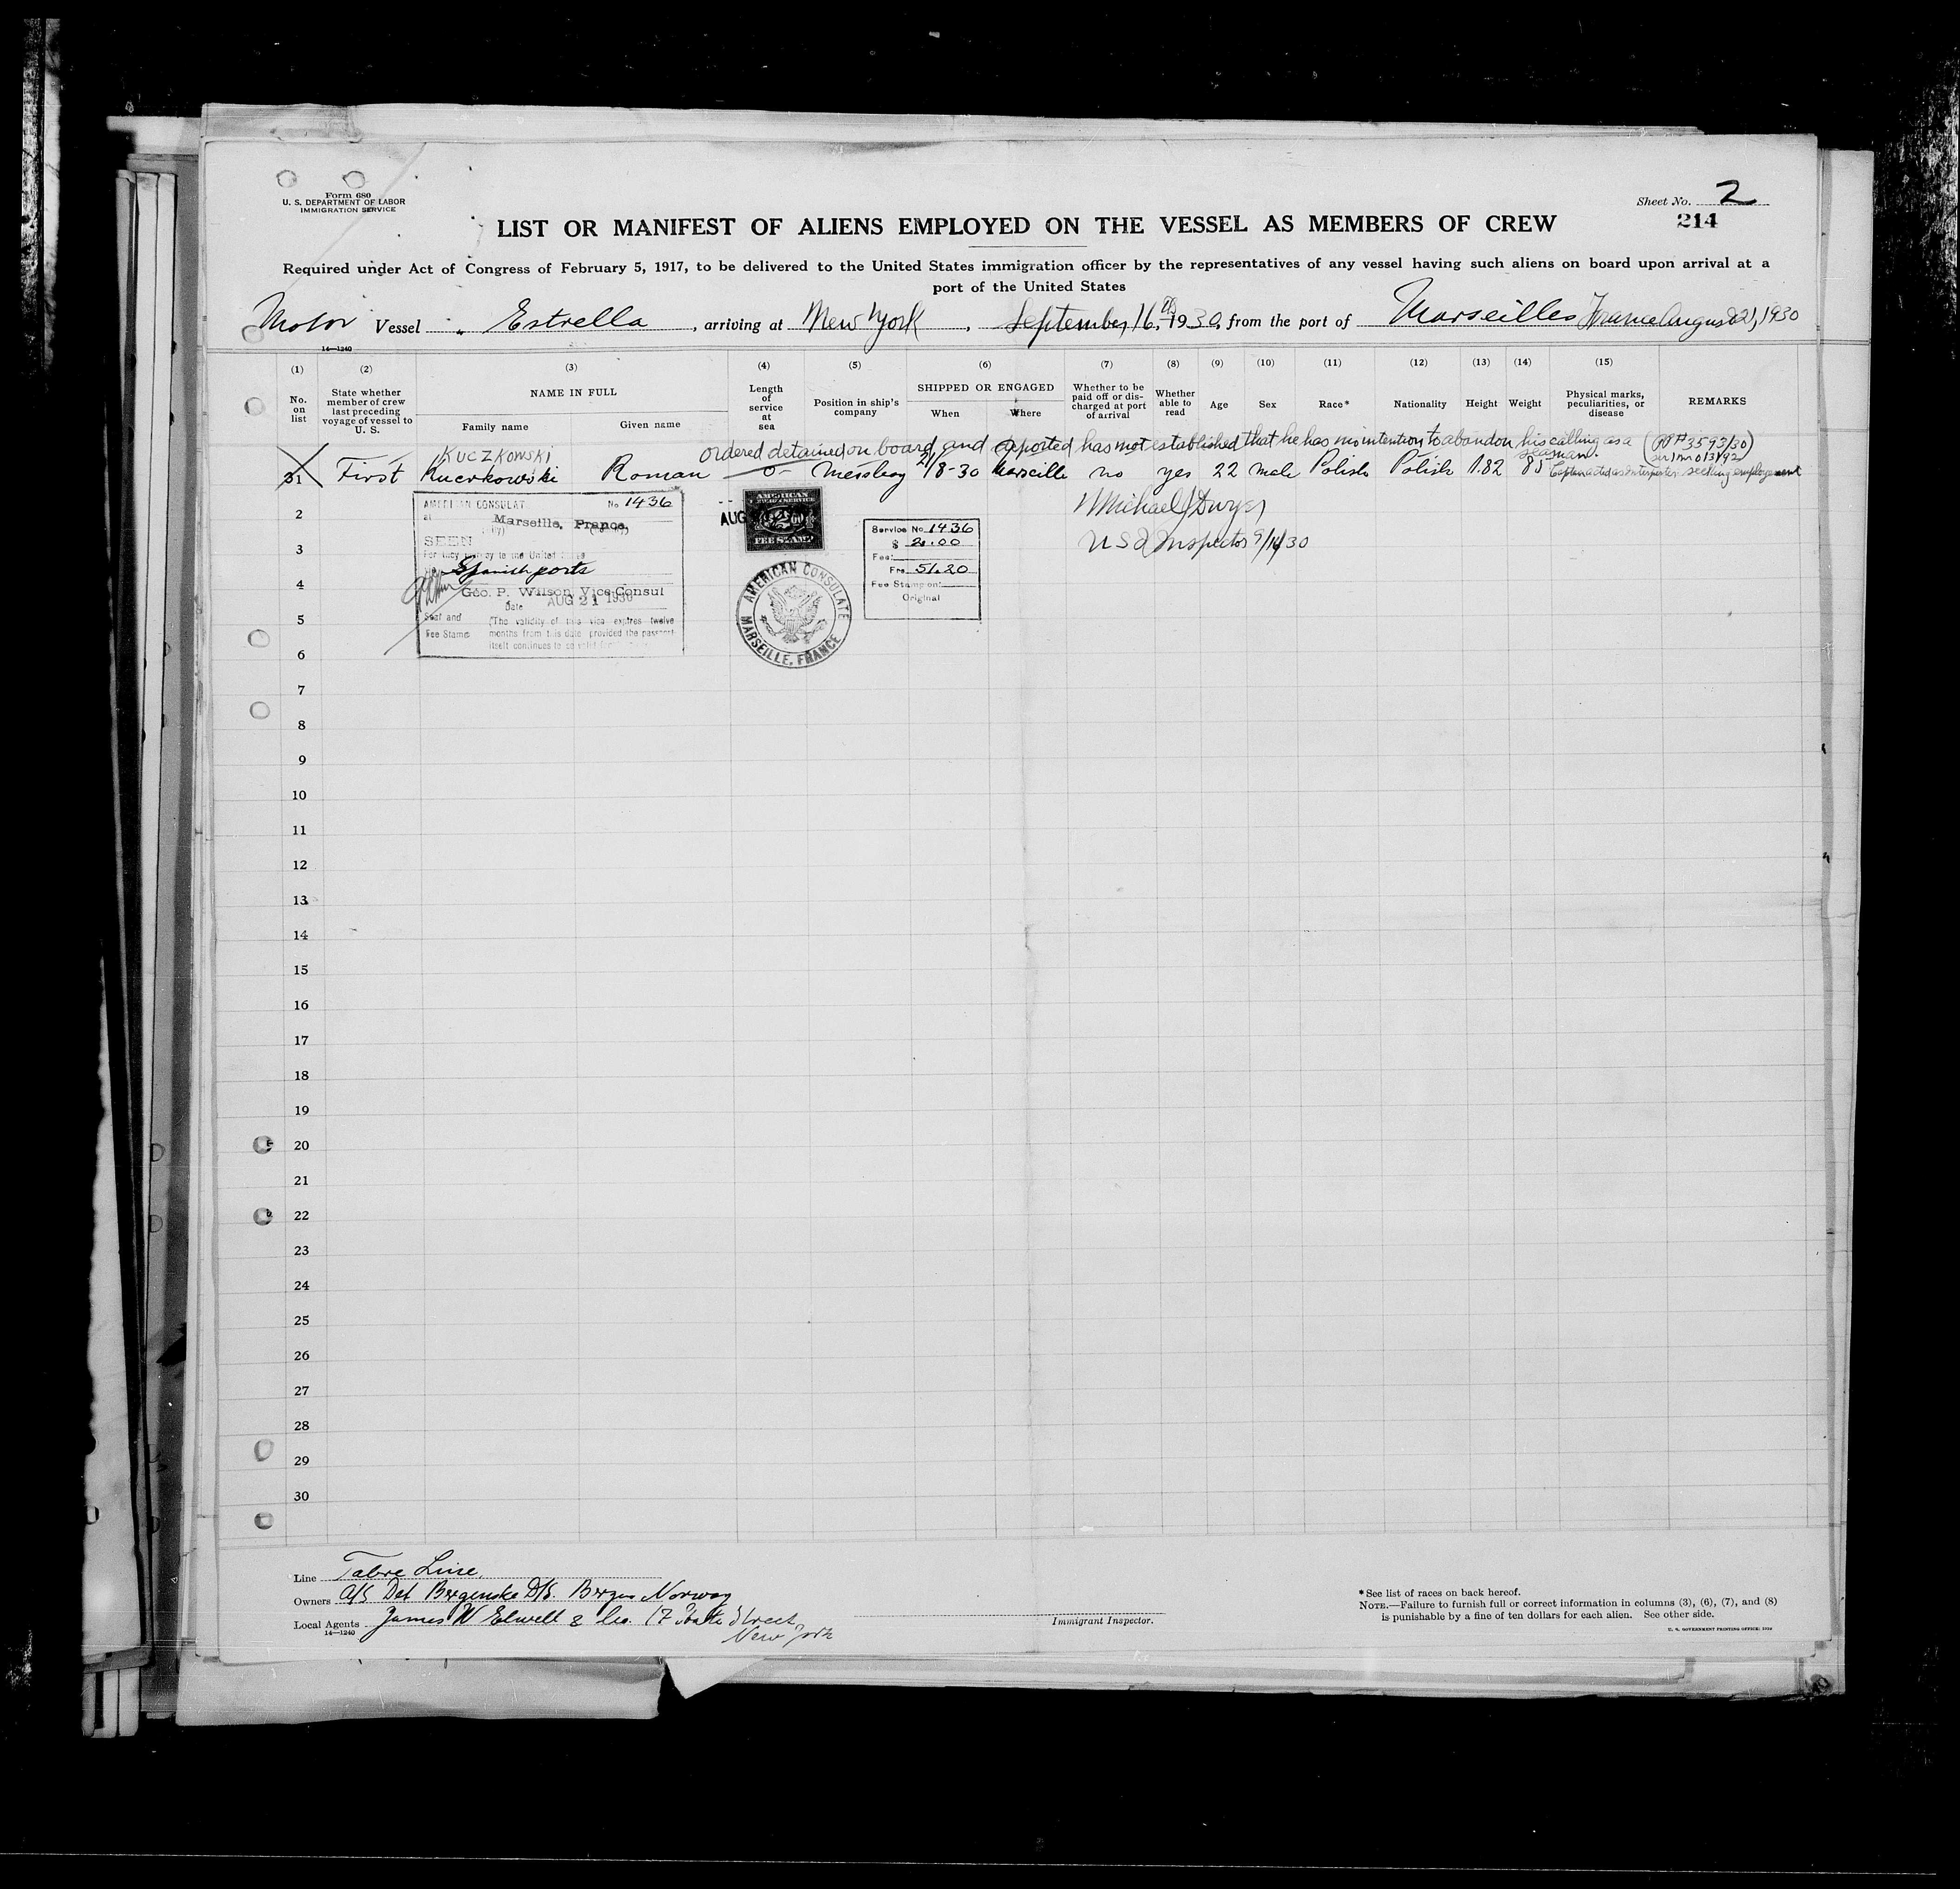 Form 680
U. S. DEPARTMENT OF LABOR
IMMIGRATION SERVICE
Sheet No. 2
214
LIST OR MANIFEST OF ALIENS EMPLOYED ON THE VESSEL AS MEMBERS OF CREW
Required under Act of Congress of February 5, 1917, to be delivered to the United States immigration officer by the representatives of any vessel having such aliens on board upon arrival at a
port of the United States
Motor Vessel Estrella, arriving at New York, September 16th, 1930, from the port of Marseilles France August 21, 1930
14—1240
(1) (2) (3) (4) (5) (6) (7) (8) (9) (10) (11) (12) (13) (14) (15)
No. on list
State whether member of crew last preceding voyage of vessel to U. S.
NAME IN FULL
Family name
Given name
Length of service at sea
Position in ship's company
SHIPPED OR ENGAGED
When
Where
Whether to be paid off or discharged at port of arrival
Whether able to read
Age
Sex
Race*
Nationality
Height
Weight
Physical marks, peculiarities, or disease
REMARKS
ordered detained on board, and deported has not established that he has no intention to abandon his calling as a seaman.
KUCZKOWSKI
31 First Kuczkowski Roman 0- Messboy 21/8-30 Marseille no yes 22 male Polish Polish 1.82 85 Captain acted as interpreter seeking employment
AMERICAN CONSULAT No 1436
at Marseille, France.
SEEN
Spanish ports
Geo. P. Wilson, Vice-Consul
Date AUG 21 1930
Seal and
Fee Stamp
(The validity of this visa expires twelve
months from this date provided the passport
itself continues to be valid
AUG
AMERICAN
FEE STAMP
AMERICAN CONSULATE
MARSEILLE, FRANCE
Service No 1436
$ 2.00
Fee:
Frs 51.20
Fee Stamp on:
Original
Michael J Dwyer
U S I Inspector 9/16/30
2
3
4
5
6
7
8
9
10
11
12
13
14
15
16
17
18
19
20
21
22
23
24
25
26
27
28
29
30
Line Fabre Line.
Owners A/S Det Bergenske D/S. Bergen Norway
Local Agents James W Elwell & Co. 17 State Street,
New York
14—1240
Immigrant Inspector.
*See list of races on back hereof.
NOTE.—Failure to furnish full or correct information in columns (3), (6), (7), and (8)
is punishable by a fine of ten dollars for each alien. See other side.